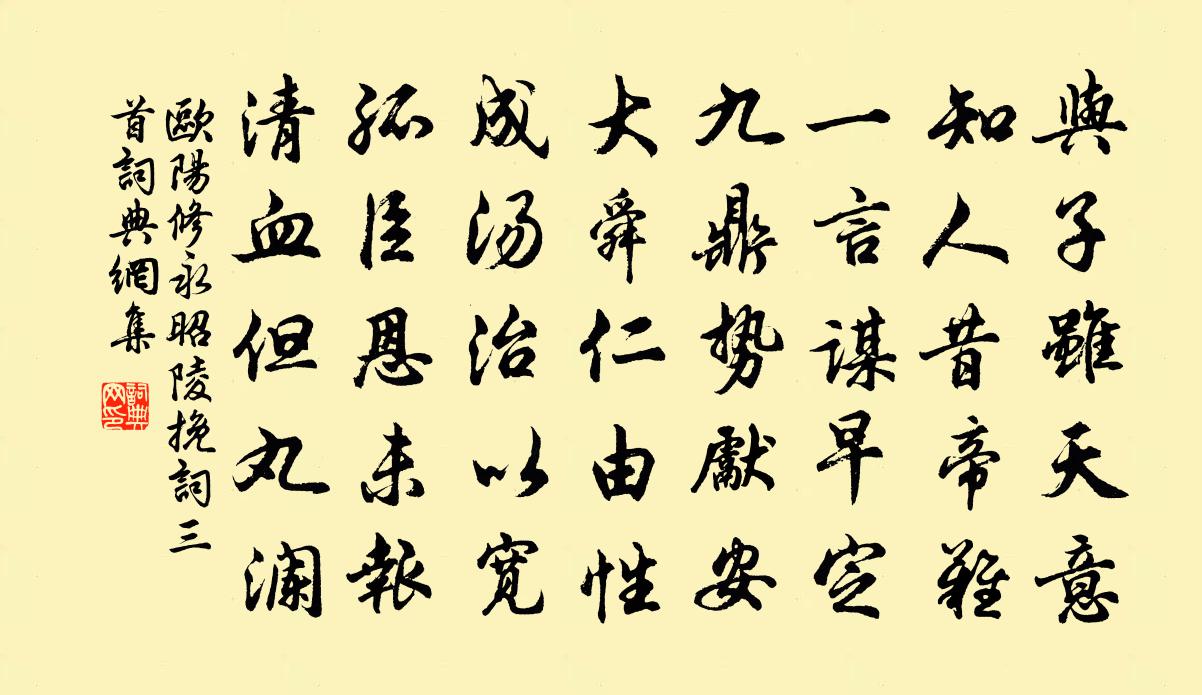 與子雖天意
知人昔帝難
一言謀早定
九鼎勢獻安
大舜仁由性
成湯治以寬
孤臣恩未報
清血但丸瀾
歐陽修永昭陵挽詞三
首詞典網集
詞典
网印